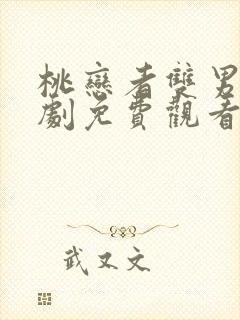 桃戀者雙男
劇免費觀看
武又文